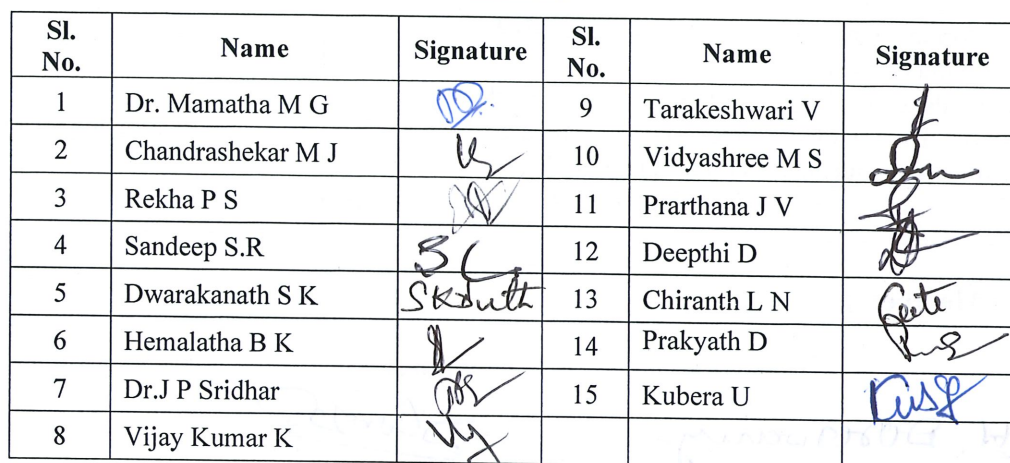 Sl. No. Name Signature Sl. No. Name Signature
1 Dr. Mamatha M G 9 Tarakeshwari V
2 Chandrashekar M J 10 Vidyashree M S
3 Rekha P S 11 Prarthana J V
4 Sandeep S.R 12 Deepthi D
5 Dwarakanath S K 13 Chiranth L N
6 Hemalatha B K 14 Prakyath D
7 Dr.J P Sridhar 15 Kubera U
8 Vijay Kumar K